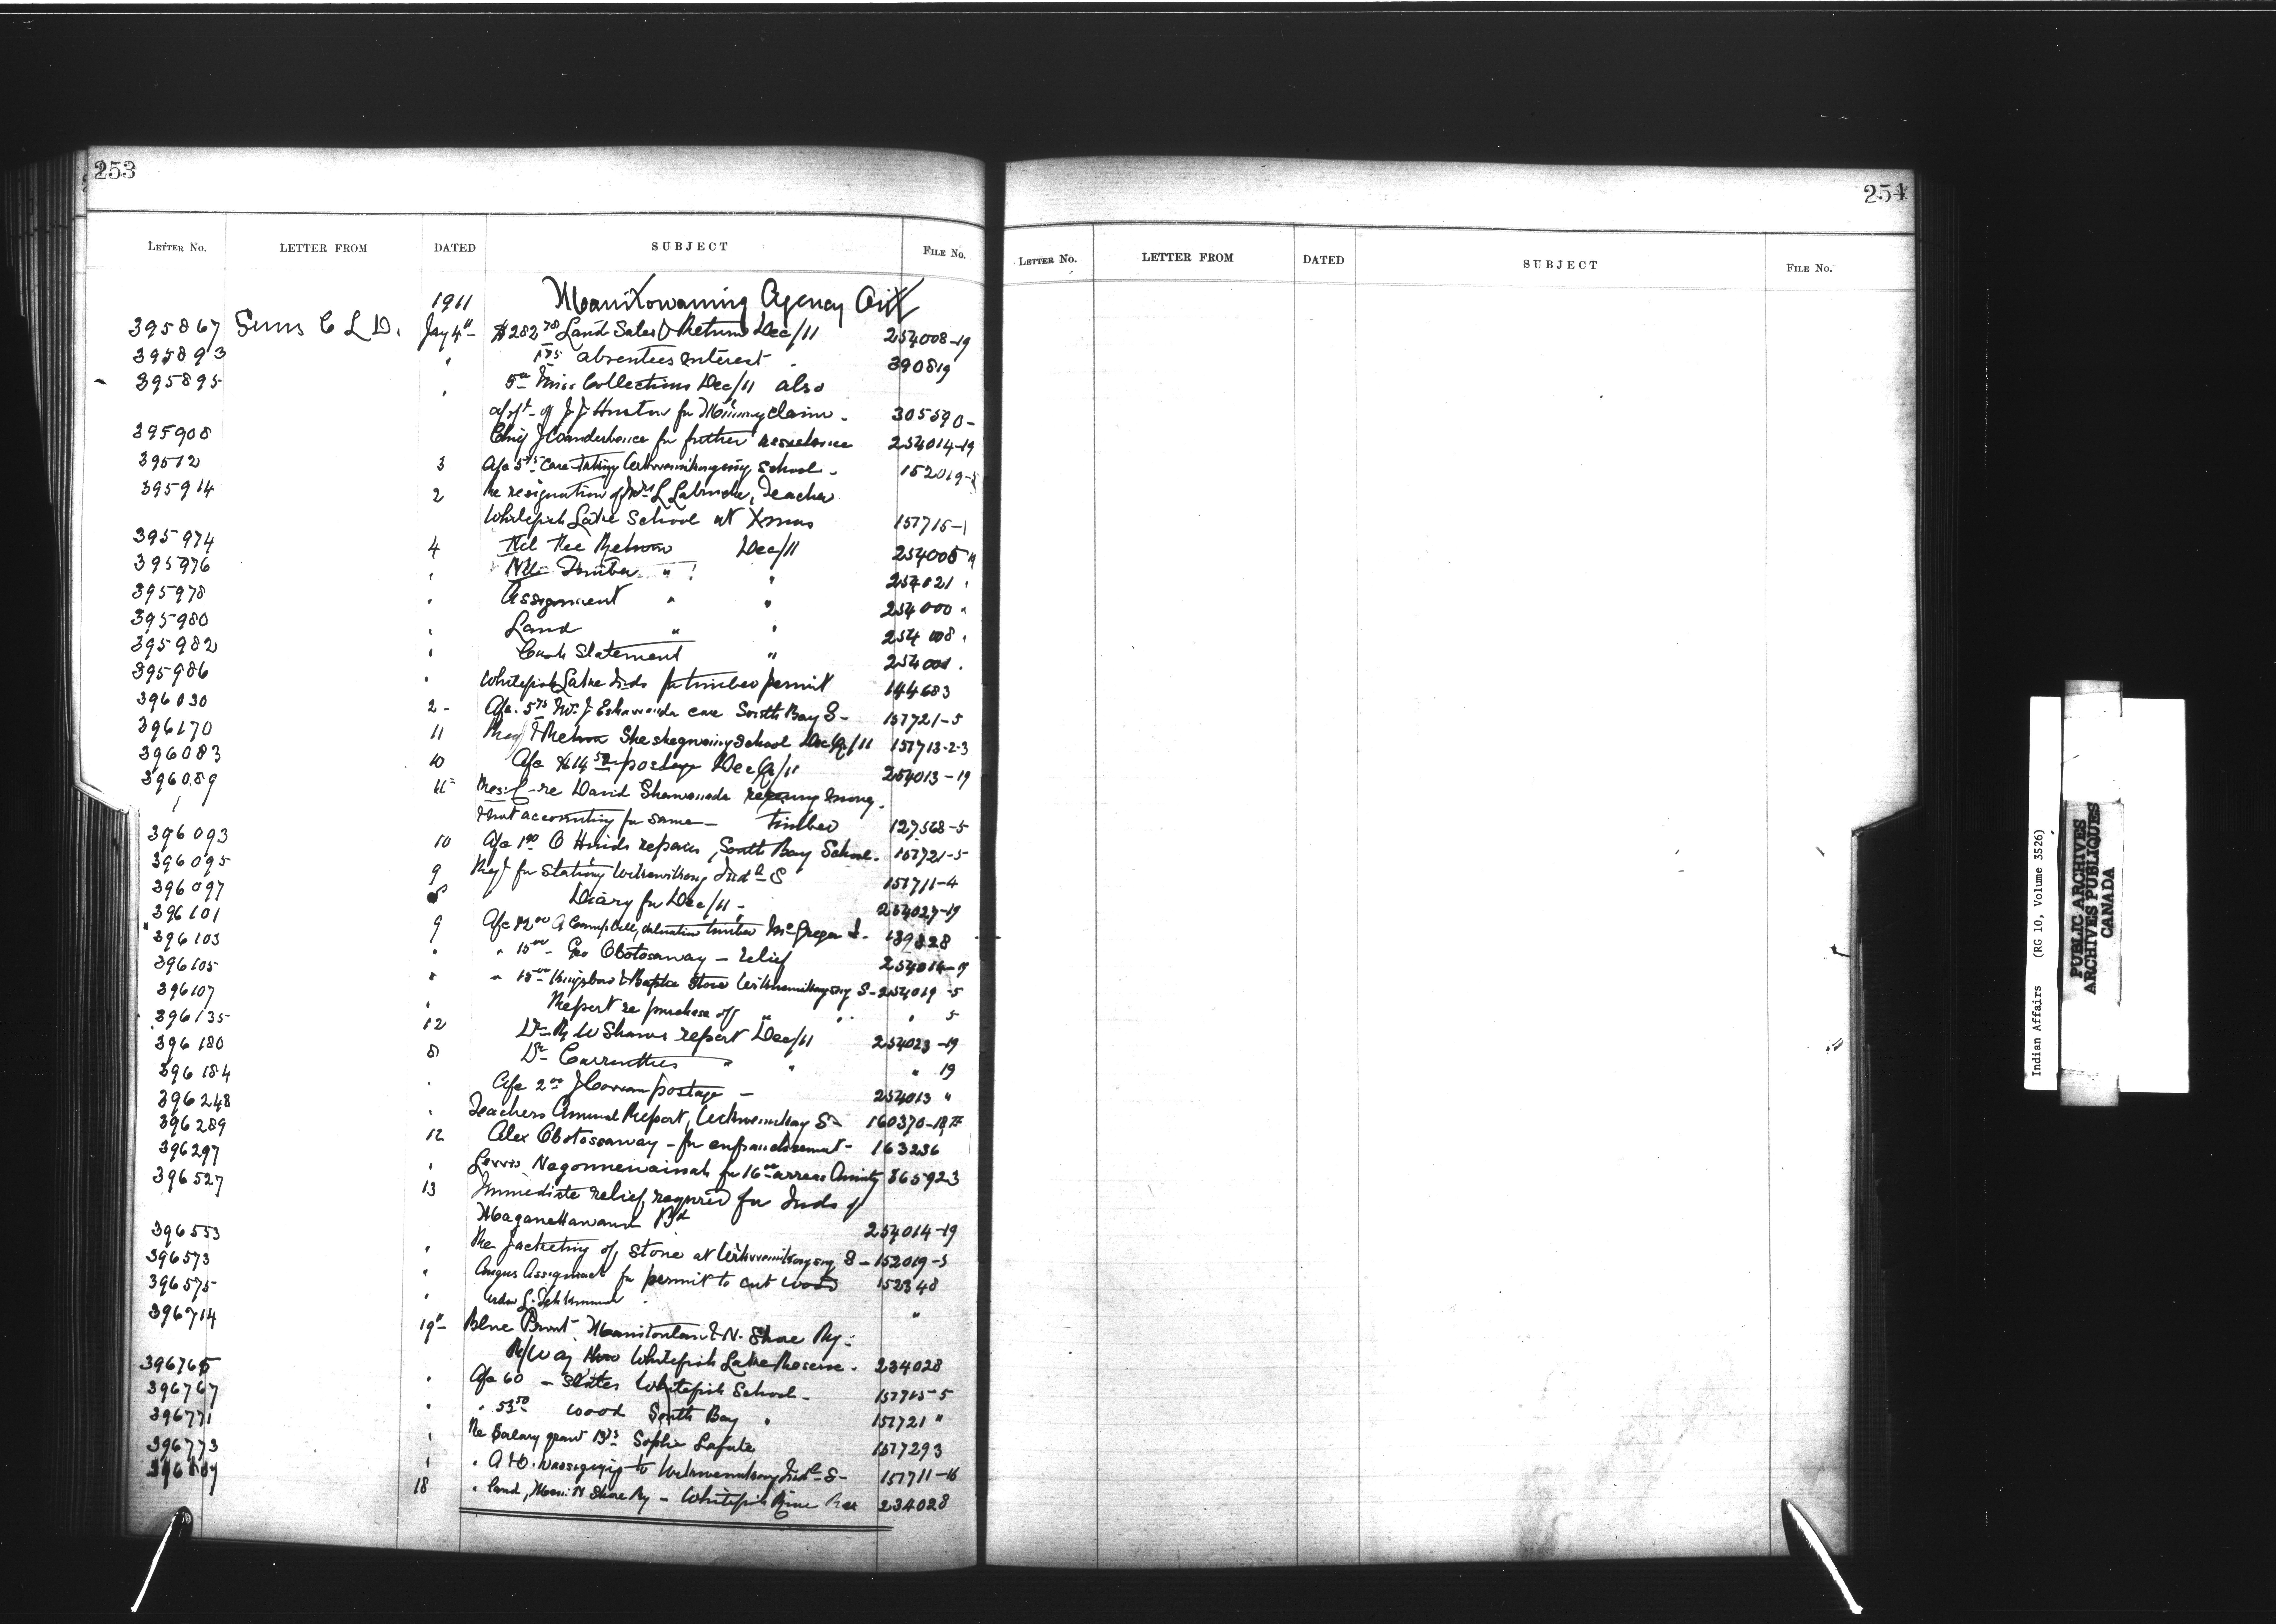 253
LETTER No. LETTER FROM DATED SUBJECT FILE No.
1911 Manitowaning Agency Ont
395867 Sims C L D. Jay 4" $282 78 Land Sales & Return Dec/11 254008-19
395893 " 175 absentees interest 390819
395895 " 5 00 Misc Collections Dec/11 also
appt of J J Huston for Mining claim - 305590-
395908 Chief J Wanderbence for further assistance 254014-19
39512 3 a/c 3 75 Care-taking Wikwemikongsing School - 152019-5
395914 2 Re resignation of Mrs L Labrache, Teacher
Whitefish Lake School at Xmas 157715-1
395974 4 Nil Rec Return Dec/11 254005 19
395976 " Nil Timber " " 254021 "
395978 " Assignment " " 254000 "
395980 " Land " " 254008 "
395982 " Cash Statement " 254001 "
395986 " Whitefish Lake Inds for timber permit 144683
396030 2 - a/c 5 75 Mrs J Eshawanda care South Bay S- 157721-5
396170 11 Req & Return Sheshegwaing School Dec Q/11 157713-2-3
396083 10 a/c $14 50 postage Dec Q/11 254013-19
396089 11 re David Shawanada money
& not accounting for same - timber 127568-5
396093 10 a/c 1 00 O Hinds repairs, South Bay School - 157721-5
396095 9 Req for Stationy Wikwemikong Ind l S 157711-4
396097 8 Diary for Dec/11 - 254027-19
396101 9 a/c 12 00 A Campbell, valuation timber McGregor I. 139828
396103 " " 15 00 - Geo Obotosaway - relief 254014-19
396105 " " 15 00 Stove Wikwemikongsing S-254019-5
396107 " Report re purchase of " " " 5
396135 12 Dr R W Shaws report Dec/11 254023-19
396180 8 Dr Carruthers " " " 19
396184 " a/c 2 00 J Corran postage - 254013 "
396248 " Teachers Annual Report, Wikwemikong S- 160370-18
396289 12 Alex Obotossaway - for enfranchisement - 163236
396297 " Levis Negonnewainah for 16 00 arrears Annuity 365923
396527 13 Immediate relief required for Inds of
Maganettawan Bd 254014-19
396553 " Re jacketing of stove at Wikwemikongsing S - 152019-5
396573 " Angus Assiginack for permit to cut wood 152348
396575 " "
396714 19" Blue Print Manitoulin & N. Shore Ry:
R/Way thro Whitefish Lake Reserve. 234028
396765 " a/c 60 - Slates Whitefish School - 157715-5
396767 " " 53 50 wood South Bay " 157721 "
396771 " Re Salary grant Sophie Lafute 1577293
396773 " " to Wikwemikong Ind l S- 157711-16
18 " land, Mani N Shore Ry - Whitefish River Res 234028
254
LETTER No. LETTER FROM DATED SUBJECT FILE No.
Indian Affairs (RG 10, Volume 3526)
PUBLIC ARCHIVES
ARCHIVES PUBLIQUES
CANADA